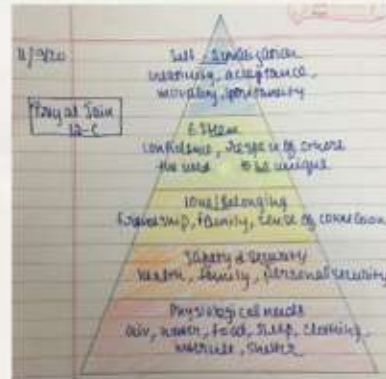 11/9/20
Payal Jain
12-C
Self-Actualization
meaning, acceptance,
morality, spontaneity
Esteem
Confidence, respect of others
the need to be unique
love/Belonging
friendship, family, sense of connection
Safety & Security
health, family, personal security
Physiological needs
air, water, food, sleep, clothing,
shelter